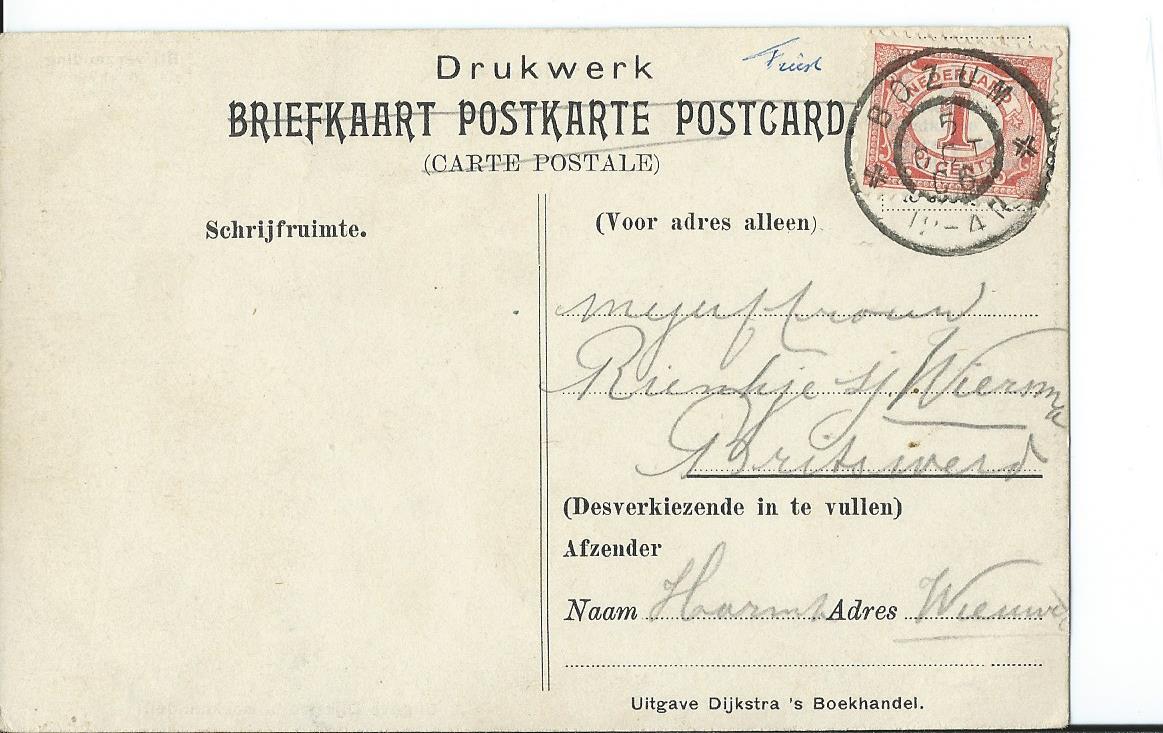 Drukwerk
BRIEFKAART POSTKARTE POSTCARD
(CARTE POSTALE)
NEDERLAND
1
CENT
BOZUM
Schrijfruimte.
(Voor adres alleen)
Mejuffrouw
Rienkje Sj Wiersma
Britswerd
(Desverkiezende in te vullen)
Afzender
Naam Harm Adres Wieuwerd
Uitgave Dijkstra 's Boekhandel.